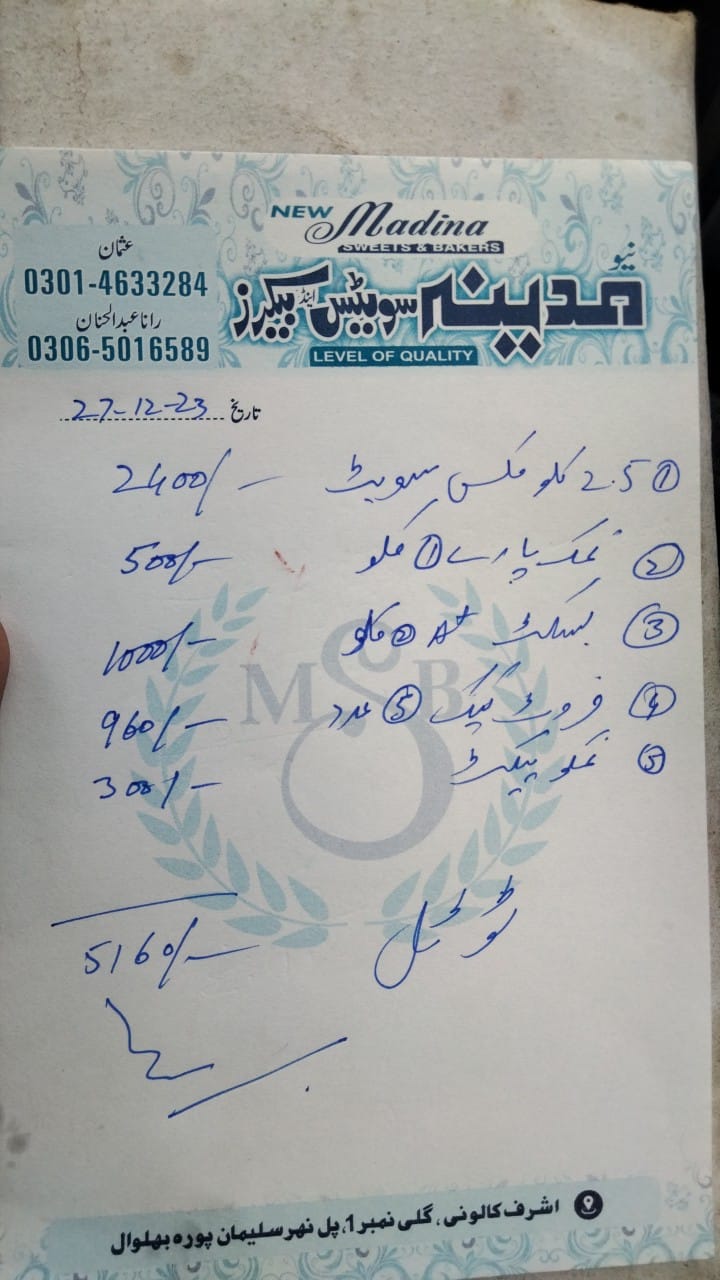 NEW Madina
SWEETS & BAKERS
نیو
مدینہ سویٹس اینڈ بیکرز
LEVEL OF QUALITY
عثمان
0301-4633284
رانا عبدالحنان
0306-5016589
تاریخ 27-12-23
① 2.5 کلو مکس سویٹ 2400/-
② نمک پارے ① کلو 500/-
③ بسکٹ A+ ② کلو 1000/-
④ فروٹ کیک ⑤ عدد 960/-
⑤ نمکو پیکٹ 300/-
MSB
ٹوٹل 5160/-
اشرف کالونی، گلی نمبر 1، پل نہر سلیمان پورہ بھلوال